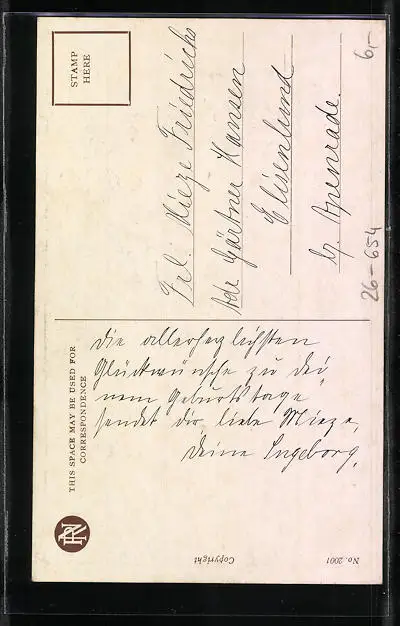 STAMP
HERE
Frl. Mieze Friedrichs
Adr. Gärtner Hansen
Elisenlund
b. Apenrade.
6,-
26-654
THIS SPACE MAY BE USED FOR
CORRESPONDENCE
Die allerherzlichsten
Glückwünsche zu dei
nem Geburtstage
sendet dir, liebe Mieze,
Deine Ingeborg.
Copyright
No. 2001